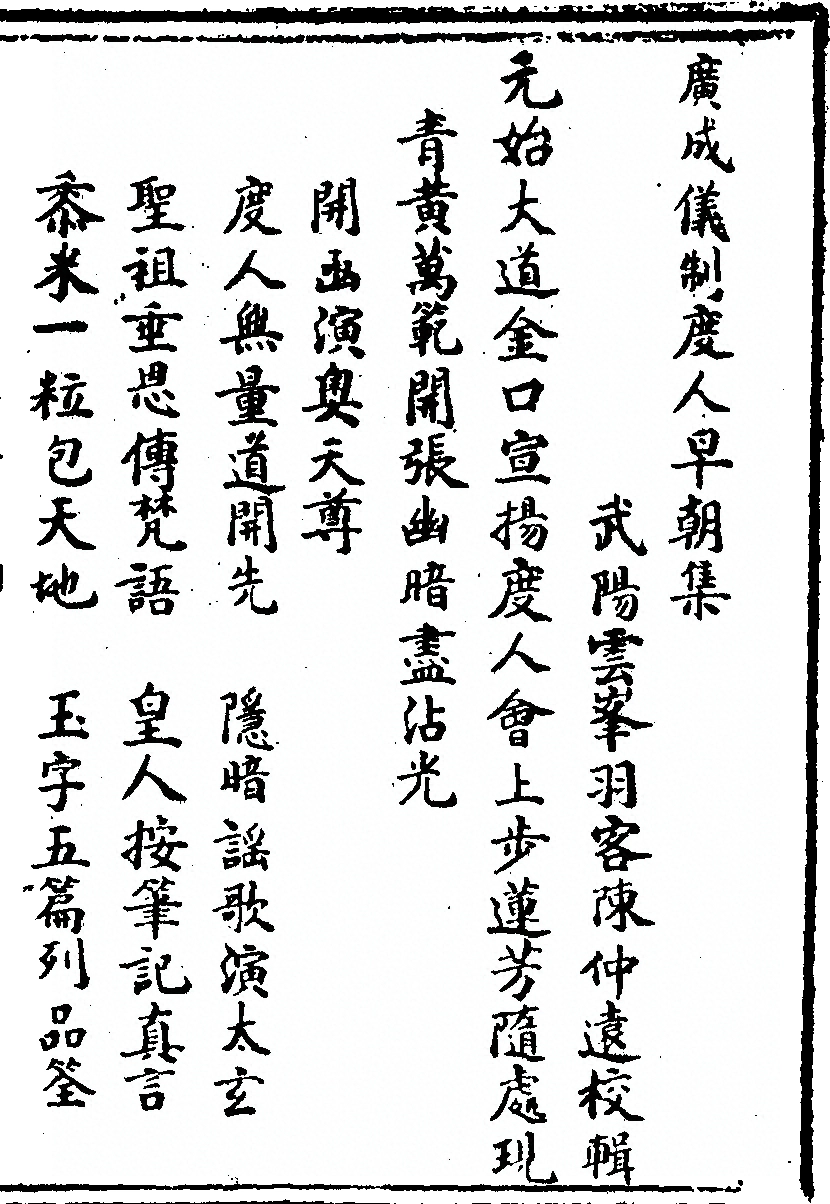 廣成儀制度人早朝集
武陽雲峯羽客陳仲遠校輯
元始大道金口宣揚度人會上步蓮芳隨處現
青黃萬範開張幽暗盡沾光
開幽演奧天尊
度人無量道開先 隱暗謡歌演太玄
聖祖垂恩傳梵語 皇人按筆記真言
黍米一粒包天地 玉字五篇列品筌